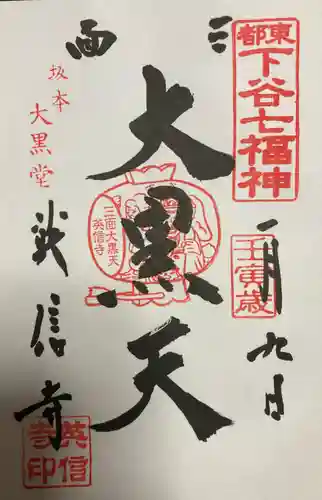 東都
下谷七福神
壬寅歳
一月九日
三面
大黒天
三面大黒天
英信寺
坂本
大黒堂
英信寺
英信
寺印